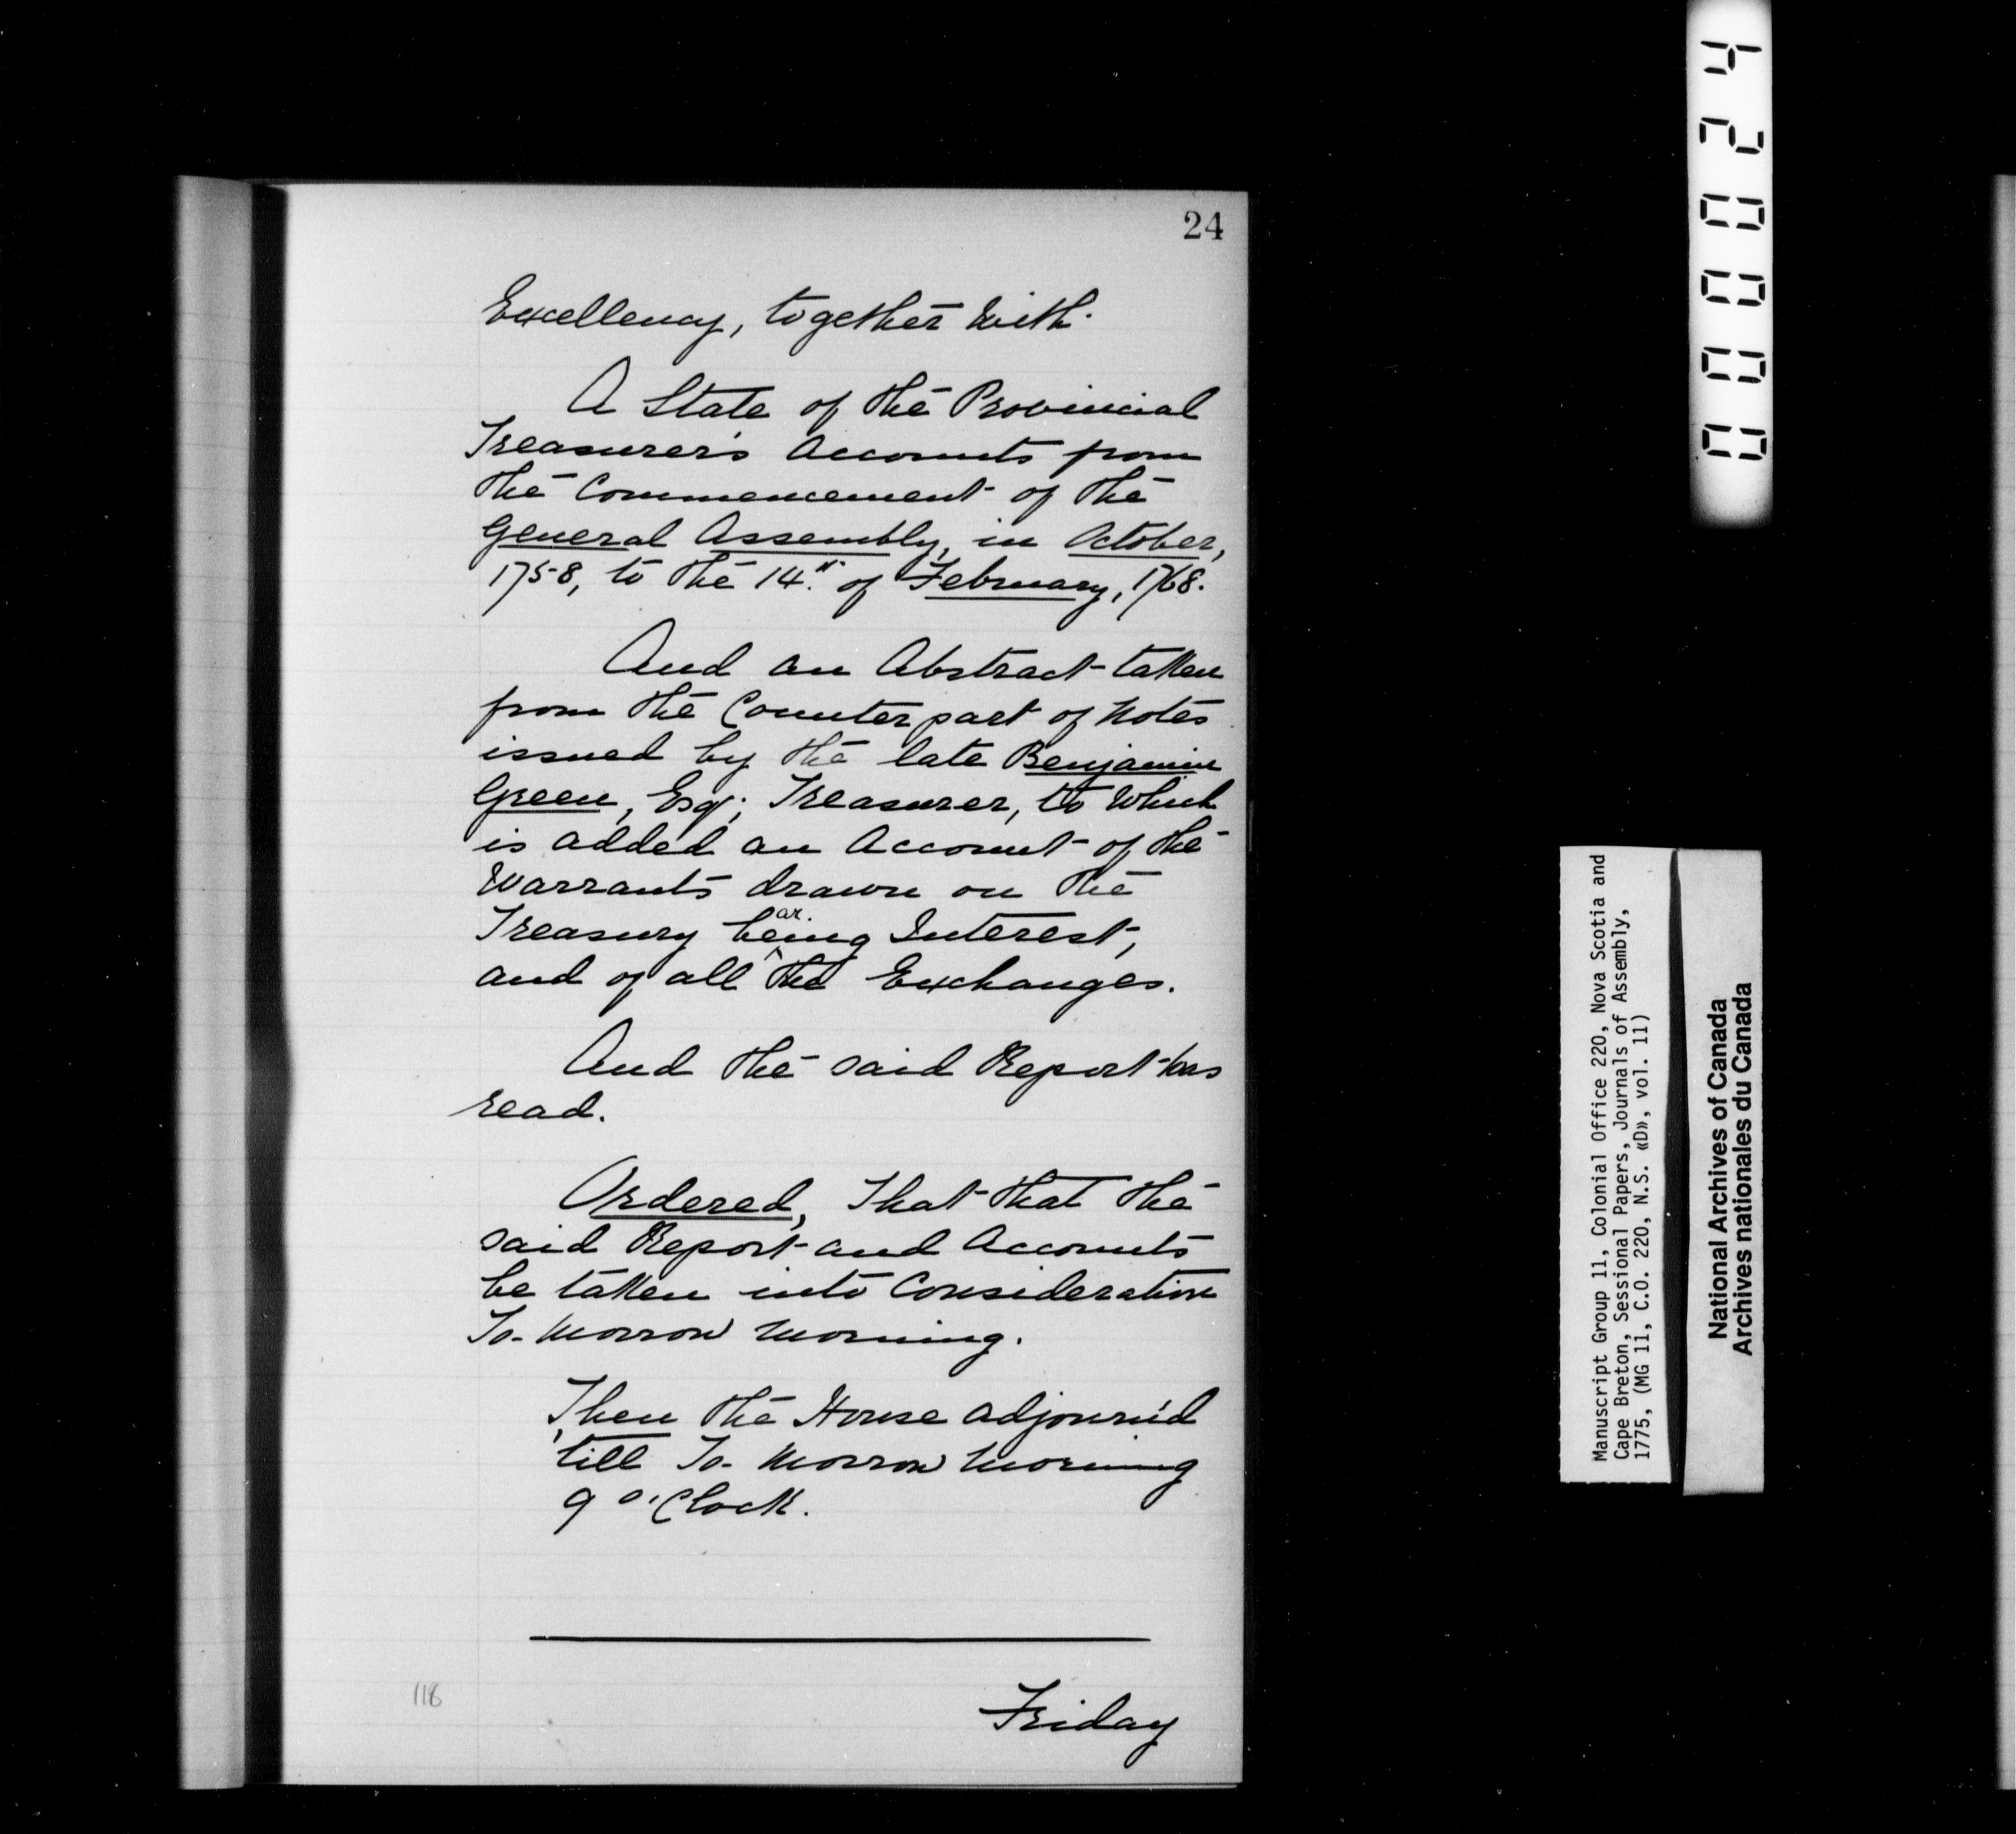 24
Excellency, together with
A State of the Provincial
Treasurer's Accounts from
the Commencement of the
General Assembly, in October,
1758, to the 14th of February, 1768.
And an Abstract taken
from the Counterpart of Notes
issued by the late Benjamin
Green, Esq; Treasurer, to which
is added an Account of the
Warrants drawn on the
Treasury bearing Interest,
and of all the Exchanges.
And the said Report was
read.
Ordered, That that the
said Report and Accounts
be taken into Consideration
To-Morrow Morning.
Then the House adjourn'd
till To-Morrow Morning
9 o'Clock.
118
Friday
000024
Manuscript Group 11, Colonial Office 220, Nova Scotia and
Cape Breton, Sessional Papers, Journals of Assembly,
1775, (MG 11, C.O. 220, N.S. «D», vol. 11)
National Archives of Canada
Archives nationales du Canada